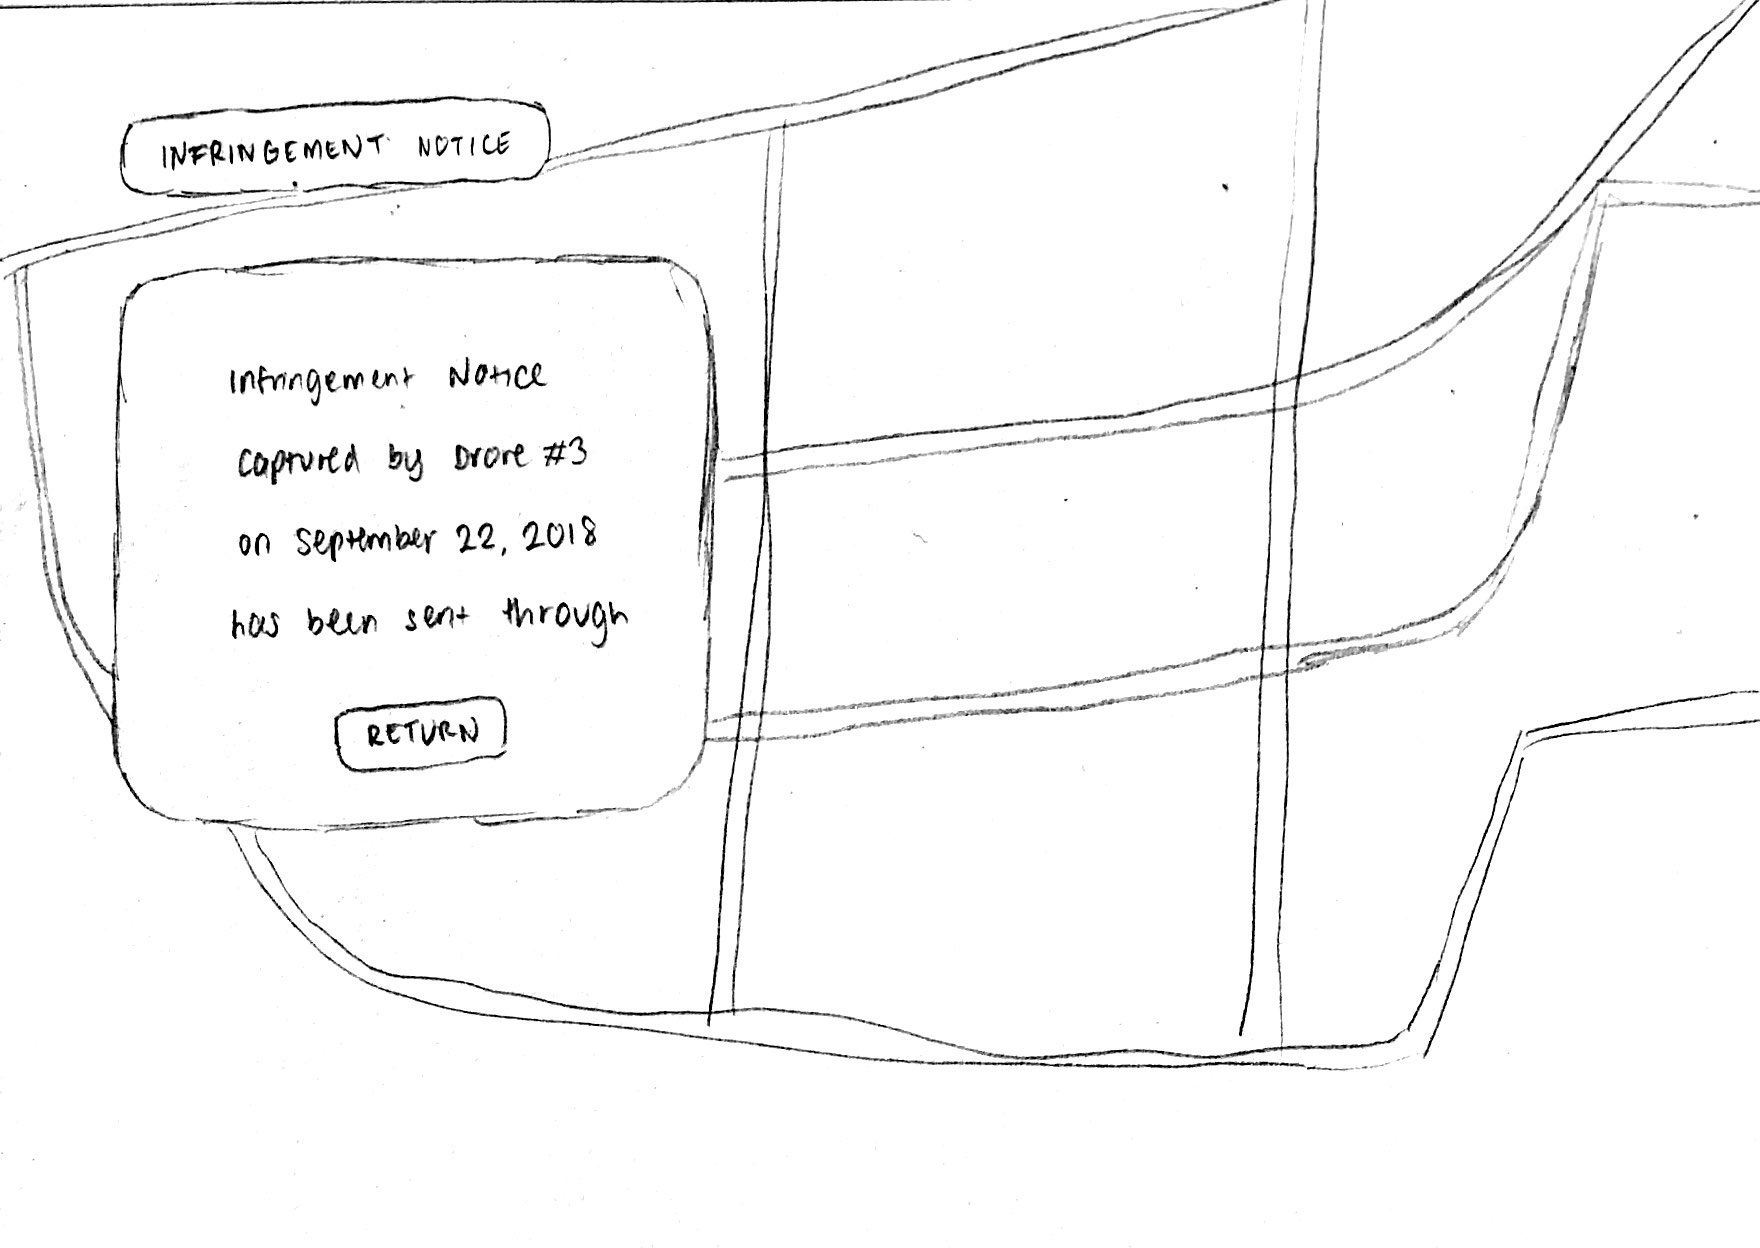 INFRINGEMENT NOTICE
Infringement Notice
captured by Drone #3
on September 22, 2018
has been sent through
RETURN